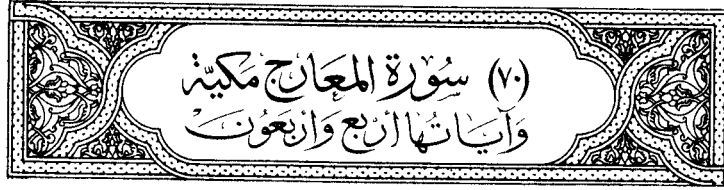 (٧٠) سُورَة المَعَارج مَكيّة
وَآيَاتُهَا أربَع وَأربَعُونَ